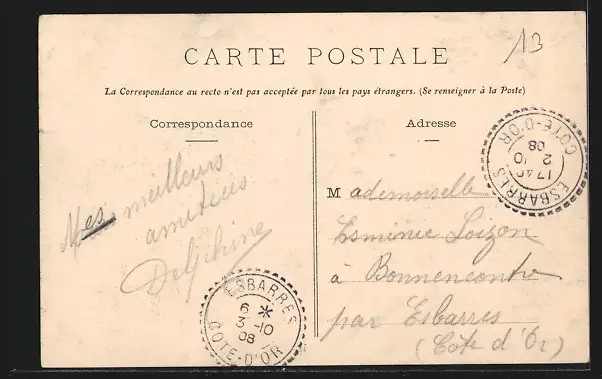 13
CARTE POSTALE
La Correspondance au recto n'est pas acceptée par tous les pays étrangers. (Se renseigner à la Poste)
Correspondance
Mes meilleurs
amitiées
Delphine
ESBARRES
6 *
3 -10
08
COTE-D'OR
Adresse
Mademoiselle
Loizon
à Bonnencontre
par Esbarres
(Côte d'Or)
ESBARRES
1740
2 -10
08
COTE-D'OR